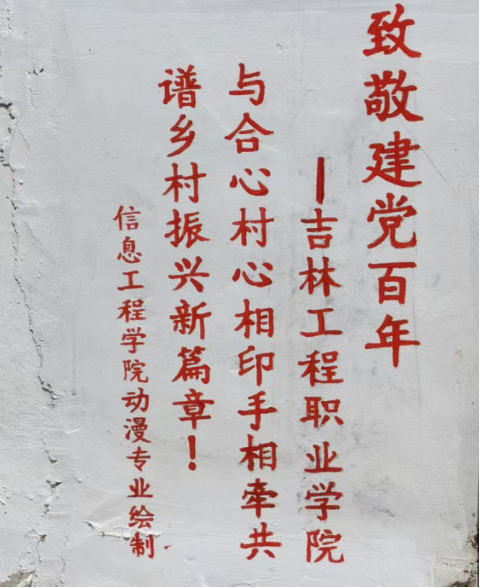 致敬建党百年
—吉林工程职业学院
与合心村心相印手相牵共
谱乡村振兴新篇章！
信息工程学院动漫专业绘制